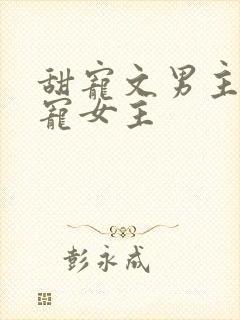 甜寵文男主
寵女主
彭永成